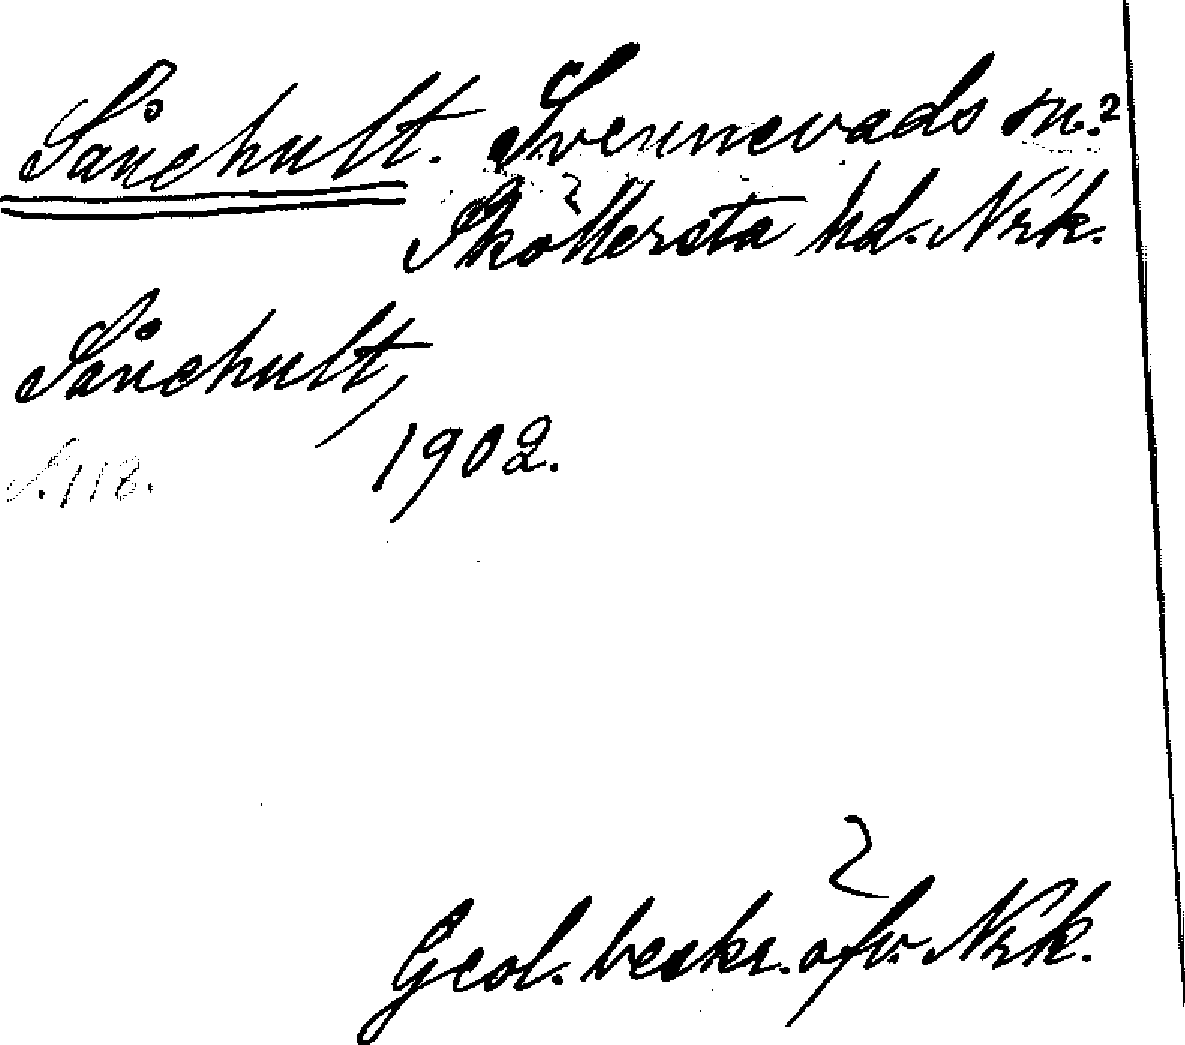 Sånehult. Svennevads sn.?
Sköllersta hd. Nrk.
Sånehult,
1902.
S. 118.
Geol. beskr. öfv. Nrk.